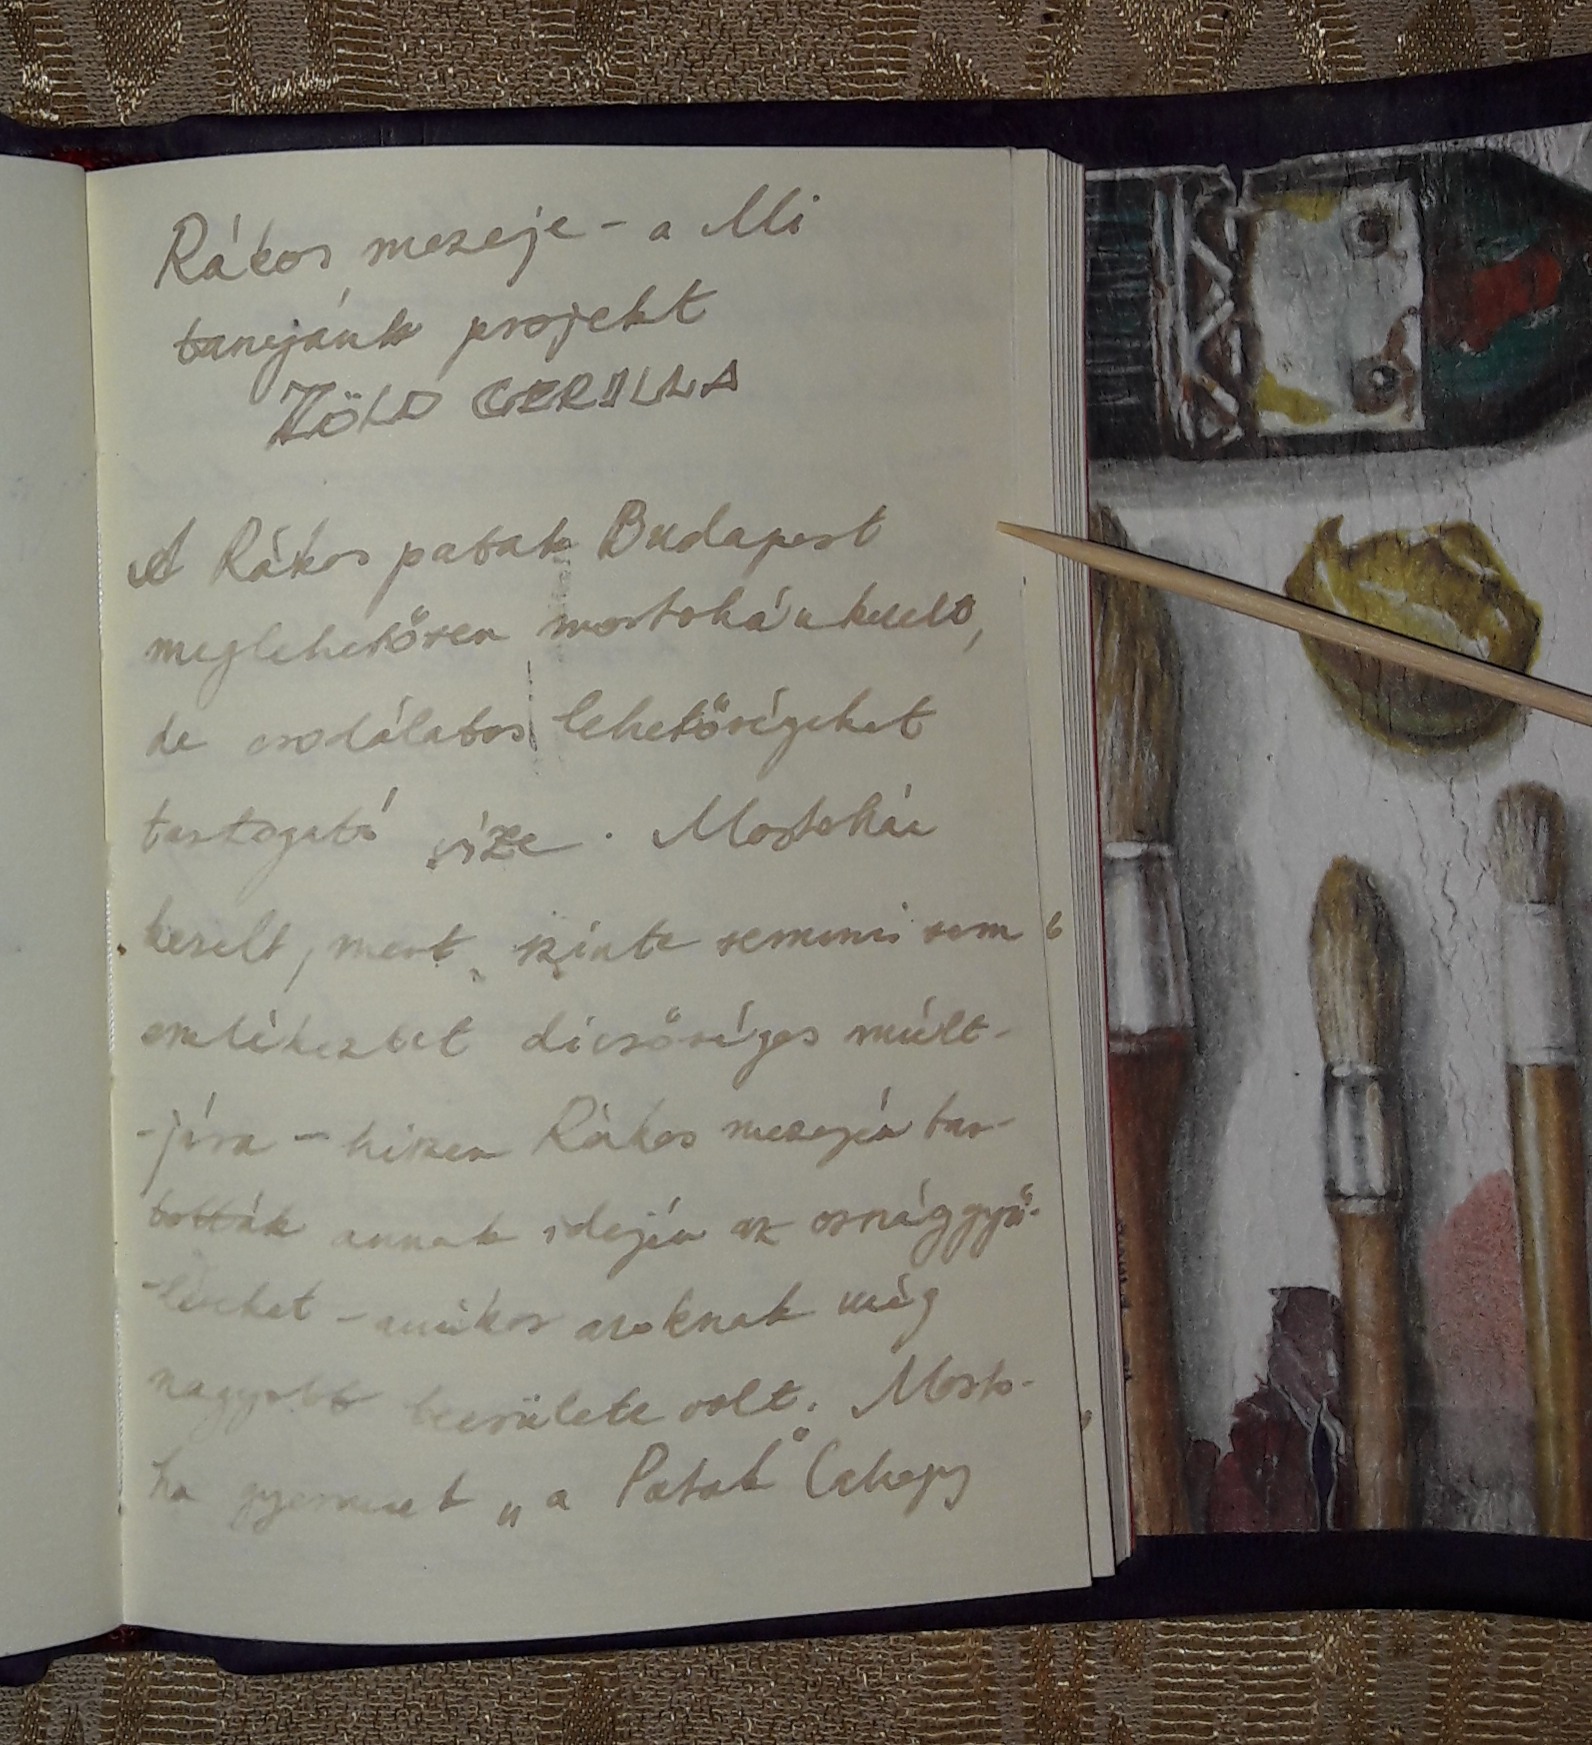 Rákos mezeje - a Mi
tanyánk projekt
ZÖLD GERILLA
A Rákos patak Budapest
meglehetősen mostohán kezelt,
de csodálatos lehetőségeket
tartogató vize. Mostohán
kezelt, mert szinte semmi sem
emlékeztet dicsőséges múlt-
-jára - hiszen Rákos mezején tar-
tották annak idején az országgyű-
-léseket - amikor azoknak még
nagyobb becsülete volt. Mosto-
ha gyermek „a Patak"